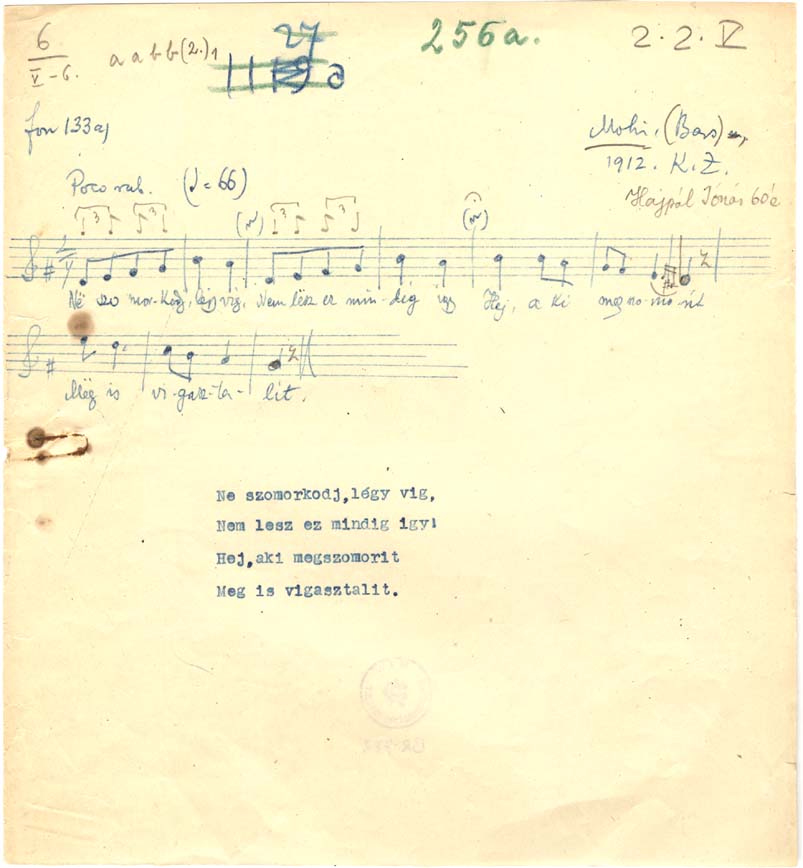 6
V-6.
a a b b (2.) 1
27
256a.
2. 2. V
fon 133a)
Mohi, (Bars)
1912. K. Z.
Hajpál Jónás 60é
Poco rub. (♩= 66)
3 3 3 3
2/4
Né szo mor-kodj, légy vig, Nem lësz ez min-dég igy Hej, a ki mëgszo-mo-rít
Mëg is vi-gasz-ta-lit.
Ne szomorkodj,légy vig,
Nem lesz ez mindig igy!
Hej,aki megszomorit
Meg is vigasztalit.